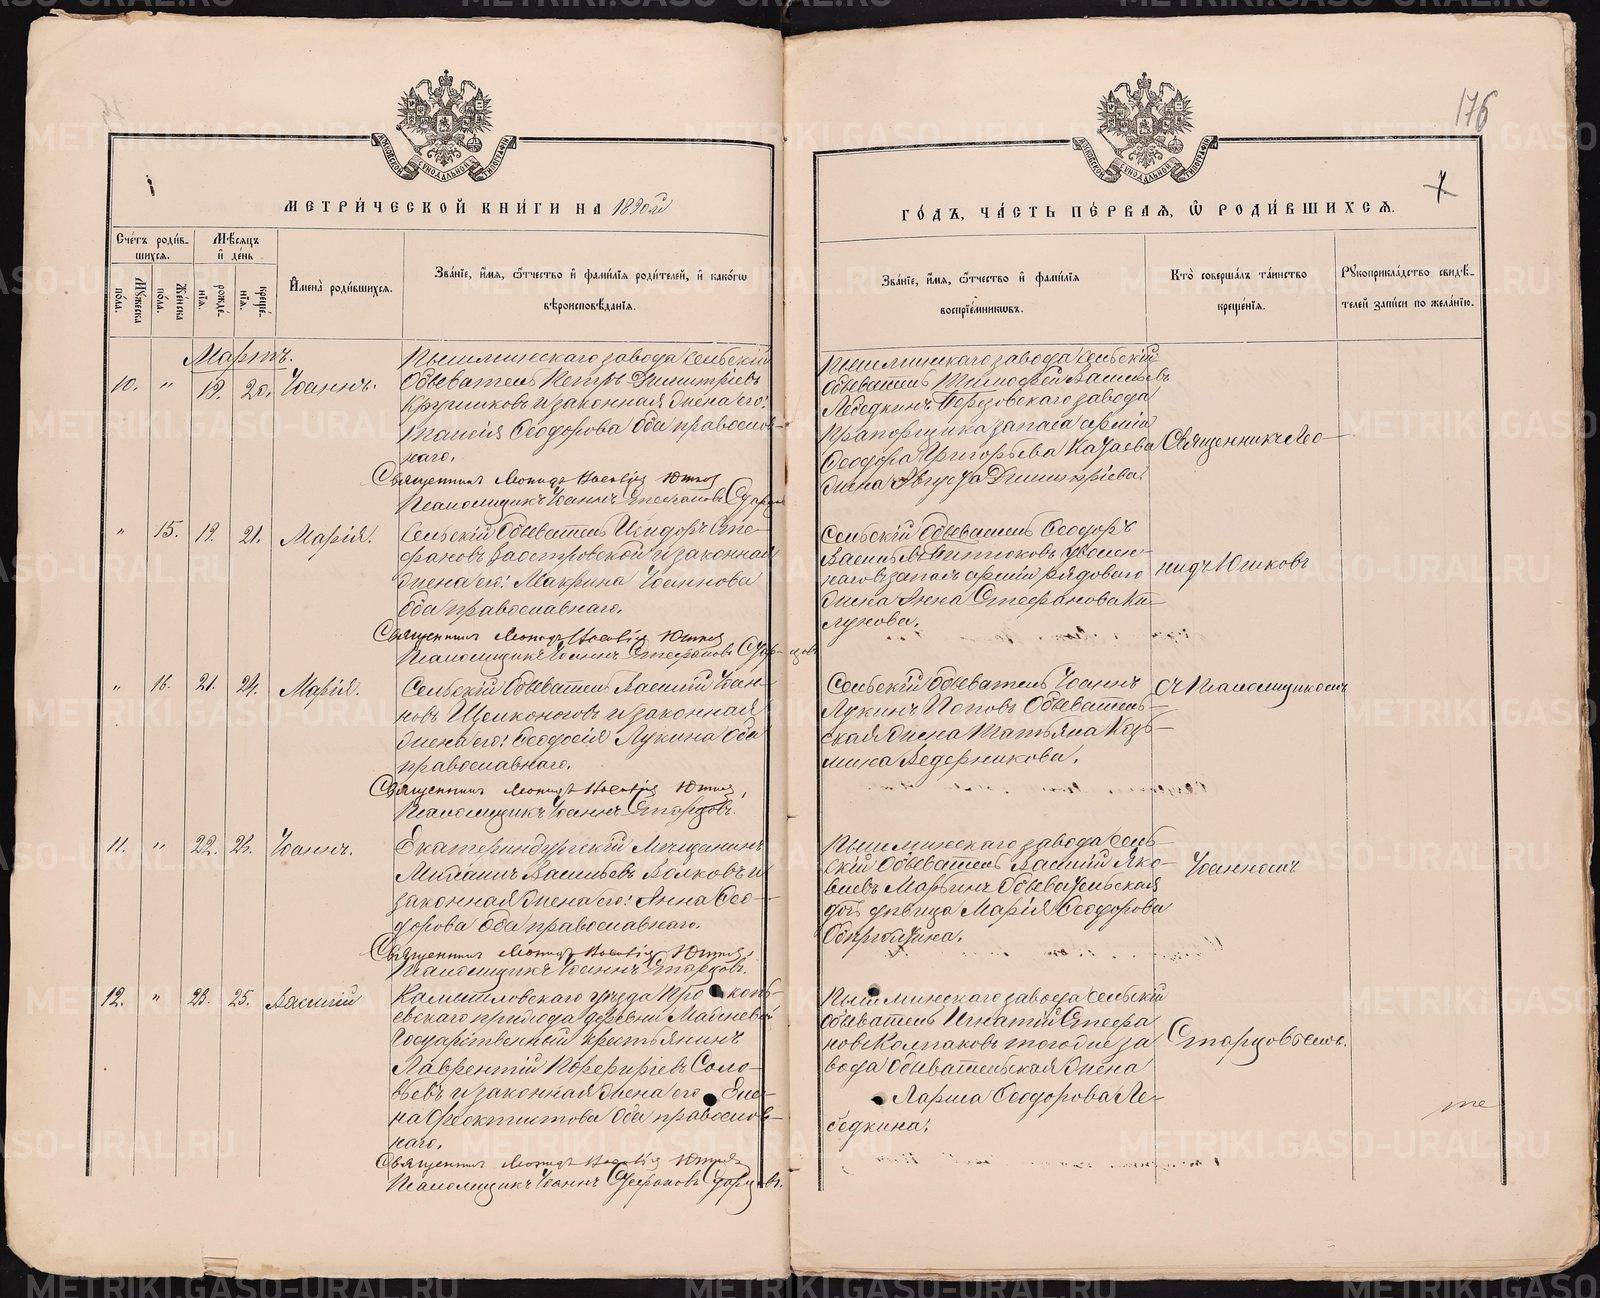 176
7
МОСКОВСКОЙ СѴНОДАЛЬНОЙ ТИПОГРАФІИ
МОСКОВСКОЙ СѴНОДАЛЬНОЙ ТИПОГРАФІИ
МЕТРИ́ЧЕСКОЙ КНИ́ГИ НА 1890й
ГО́ДЪ, ЧА́СТЬ ПЕ́РВАЯ, Ѡ РОДИ́ВШИХСЯ.
Сче́тъ роди́в-
шихся.
Мѣ́сяцъ
и҆ де́нь
Мꙋжеска по́ла.
Же́нска по́ла.
рожде́-
нїя.
креще́-
нїя.
И҆мена̀ роди́вшихся.
Зва́нїе, и҆́мя, ѻ҆́тчество и҆ фами́лїя роди́телей, и҆ како́гѡ
вѣроисповѣ́данїя.
Зва́нїе, и҆́мя, ѻ҆́тчество и҆ фами́лїя
воспрїе́мникѡвъ.
Кто̀ соверша́лъ та́инство
креще́нїя.
Рꙋкоприкла́дство свидѣ́-
телей за́писи по жела́нїю.
Мартъ.
10. " 19. 20. Іоаннъ.
Пышминскаго завода сельскій
обыватель Петръ Димитріевъ
Крушковъ и законная жена его:
Таисія Ѳеодорова оба православ-
наго.
Священникъ Леонидъ Іюшковъ
Псаломщикъ Іоаннъ Стефановъ Старцовъ
Пышминскаго завода сельскій
обыватель Тимоѳей Васильевъ
Лебедкинъ Березовскаго завода
прапорщика запаса арміи
Ѳеодора Григорьева Казаева
жена Августа Димитріева.
Священникъ Лео-
" 15. 19. 21. Марія.
Сельскій обыватель Исидоръ Сте-
фановъ Заостровской и законная
жена его: Макрина Іоаннова
оба православнаго.
Священникъ Леонидъ Юшковъ
Псаломщикъ Іоаннъ Стефановъ Старцовъ
Сельскій обыватель Ѳеодоръ
Васильевъ Питюковъ уволен-
наго въ запасъ арміи рядоваго
жена Анна Стефанова Ки-
лунова.
нидъ Юшковъ
" 16. 21. 24. Марія.
Сельскій обыватель Василій Іоан-
новъ Щелконоговъ и законная
жена его: Ѳеодосія Лукина оба
православнаго.
Священникъ Леонидъ Юшковъ
Псаломщикъ Іоаннъ Старцовъ.
Сельскій обыватель Іоаннъ
Лукинъ Поповъ обыватель-
ская жена Татьяна Козь-
мина Ведерникова.
съ Псаломщикомъ
11. " 22. 23. Іоаннъ.
Екатеринбургскій Мѣщанинъ
Михаилъ Васильевъ Волковъ и
законная жена его: Анна Ѳео-
дорова оба православнаго.
Священникъ Леонидъ Юшковъ
Псаломщикъ Іоаннъ Старцовъ.
Пышминскаго завода сель-
скій обыватель Василій Яко-
влевъ Марьинъ обывательская
дочь дѣвица Марія Ѳеодорова
Іоанномъ
12. " 23. 25. Василій
Камышловскаго уѣзда Прокопь-
евскаго прихода деревни
Государственный крестьянинъ
Лаврентій Порфиріевъ Соло-
вьевъ и законная жена его Еле-
на Ѳеоктистова оба православ-
наго.
Священникъ Леонидъ Юшковъ
Псаломщикъ Іоаннъ Стефановъ Старцовъ.
Пышминскаго завода сельскій
обыватель Игнатій Стефа-
новъ Колпаковъ того же за-
вода обывательская жена
Лариса Ѳеодорова Ле-
бедкина.
Старцовымъ.